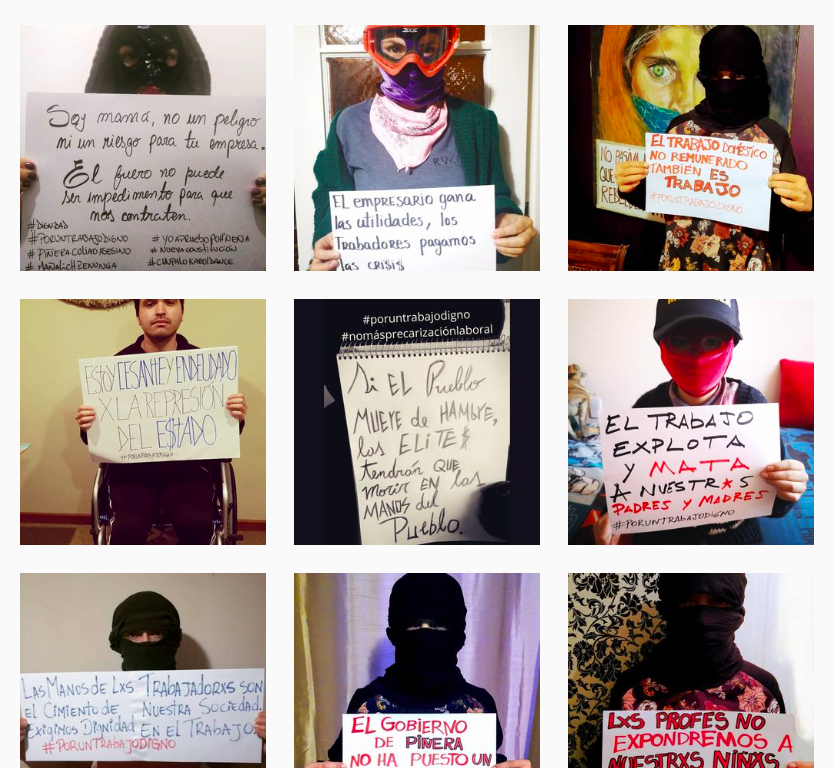 Soy mamá, no un peligro
ni un riesgo para tu empresa.
El fuero no puede
ser impedimento para que
nos contraten.
#DIGNIDAD
#PORUNTRABAJODIGNO
#PIÑERACULIAOASESINO
#MAÑALICHRENUNCIA
#NUEVACONSTITUCIÓN
RVCA
El EMPRESARIO gana
las utilidades, los
Trabadores pagamos
las CRI$I$
NO
QUE
REBEL
EL TRABAJO DOMÉSTICO
NO REMUNERADO
TAMBIÉN ES
TRABAJO
#PORUNTRABAJODIGNO
ESTOY CESANTE Y ENDEUDADO
X LA REPRESIÓN
DEL E$TADO
#PORUNTRABAJODIGNO
#poruntrabajodigno
#nomásprecarizaciónlaboral
Si EL Pueblo
MUERE de HAMbRE,
las ELiTE$
tendrán QUE
morir EN las
MANOS del
Pueblo.
EL TRABAJO
EXPLOTA
Y MATA
A NUESTR*S
PADRES Y MADRES
#PORUNTRABAJODIGNO
LAS MANOS de LXS TRABAJADORXS SON
el CIMIENTO de NUESTRA SOCIEDAD.
EXIGIMOS DIGNIDAD EN El TRABAJO.
#PORUNTRABAJODIGNO
EL GOBIERNO
DE PIÑERA
NO HA PUESTO UN
LXS PROFES NO
EXPONDREMOS A
NUESTRXS NIÑXS